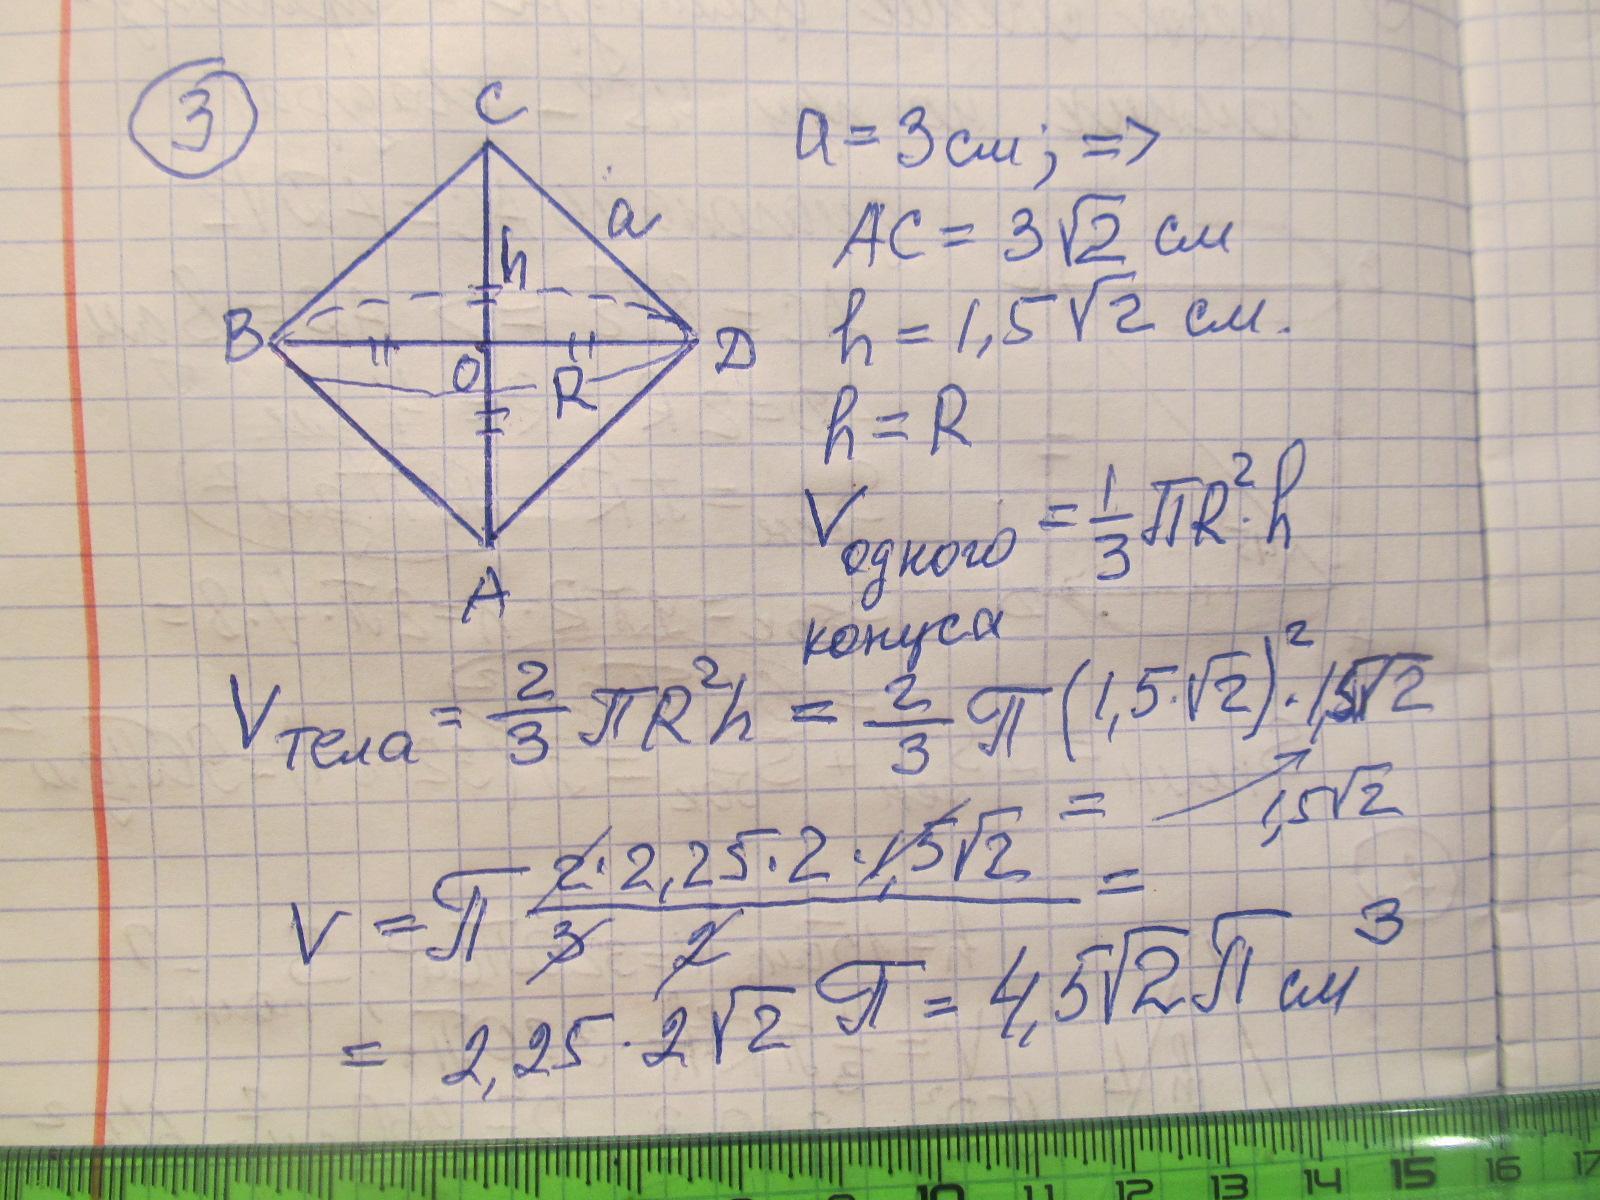 3
C
a
h
B
O
R
D
A
a = 3 см; =>
AC = 3√2 см
h = 1,5√2 см.
h = R
V одного конуса = 1/3 πR²·h
V тела = 2/3 πR²h = 2/3 π(1,5·√2)²·1,5√2 =
1,5√2
V = π 2·2,25·2·1,5√2 / 3 2 =
= 2,25·2√2 π = 4,5√2 π см³
10 11 12 13 14 15 16 17